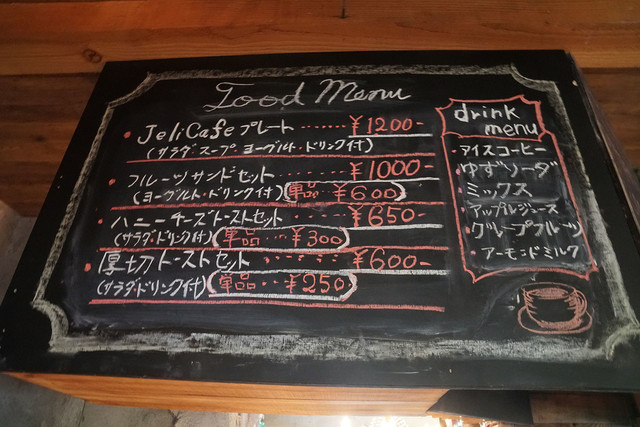 Food Menu
・JeliCafe プレート ‥‥‥ ¥1200-
(サラダ・スープ ヨーグルト・ドリンク付)
・フルーツサンドセット ‥‥‥ ¥1000-
(ヨーグルト・ドリンク付) 単品‥¥600
・ハニーチーズトーストセット ‥‥ ¥650-
(サラダ・ドリンク付) 単品‥‥¥300
・厚切トーストセット ‥‥‥ ¥600-
(サラダ・ドリンク付) 単品‥¥250
drink
menu
・アイスコーヒー
・ゆずソーダ
・ミックス
・アップルジュース
・グレープフルーツ
・アーモンドミルク